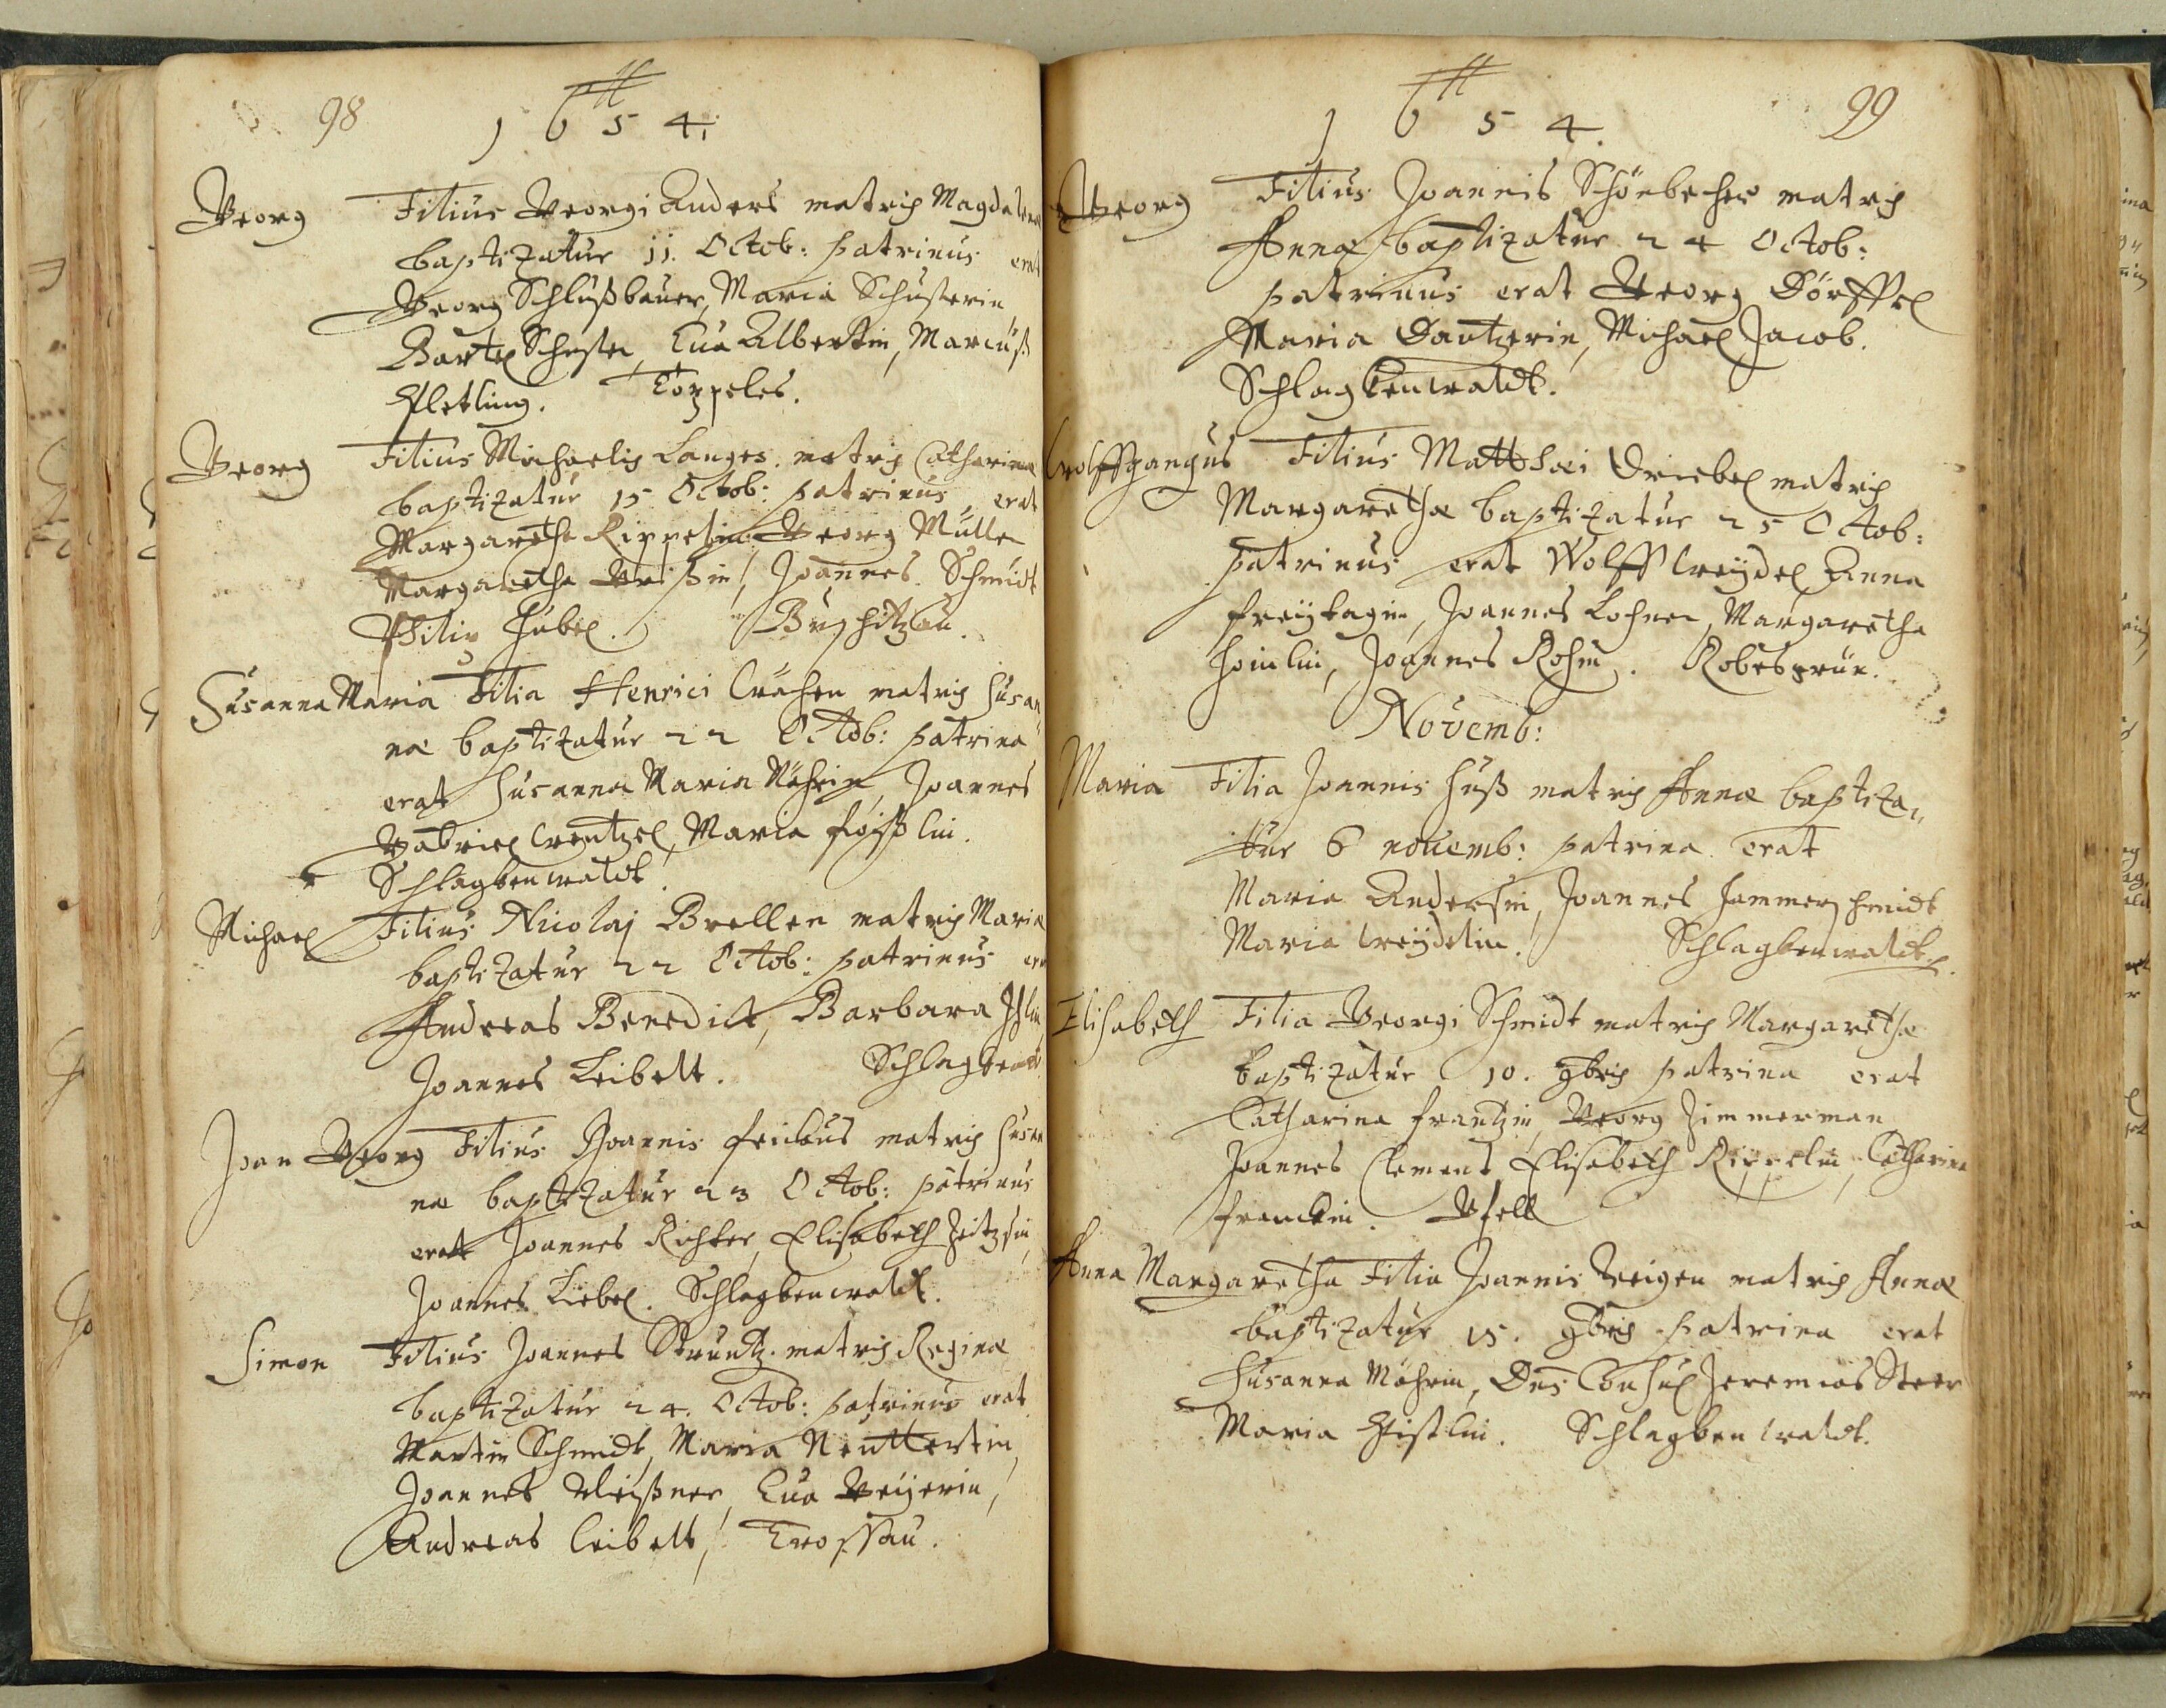 98
1654.
Georg Filius Georgi Anders matris Magdalenæ
baptizatur 11. Octob: patrinus erat
Georg Schlußbauer, Maria Schusterin,
Bartel Schuster, Eua Albertin, Marcuß
Töppeles.
Georg Filius Michaelis Langes matris Catharinæ
baptizatur 15 Octob: patrinus erat
Margaretha Rippelin Georg Müller
Margaretha Joannes Schmidt
Philip Hübel.
Susanna Maria Filia Henrici matris Susan
næ baptizatur 22 Octob: patrina
erat Susanna Maria Möhrin, Joannes
Gabriel Wentzel, Maria
Schlagkenwaldt.
Michael Filius Nicolaj Brellen matris Mariæ
baptizatur 22 Octob: patrinus
Andreas Benedict, Barbara
Joannes Leibelt.
Joan Georg Filius Joannis matris Susan
næ baptizatur 23 Octob: patrinus
erat Joannes Richter, Elisabeth
Joannes Liebel. Schlagkenwaldt.
Simon Filius Joannes Struntz matris Reginæ
baptizatur 24. Octob: patrinus erat
Martin Schmidt, Maria
Joannes Meißner, Eua Geijerin,
Andreas Leibelt, Trossau.
99
1654.
Georg Filius Joannis Schönbecher matris
Annæ baptizatur 24 Octob:
patrinus erat Georg Dörffel
Maria Dantzerin, Michael Jacob.
Schlagkenwaldt.
Wolffgangus Filius Matthæi Driebel matris
Margarethæ baptizatur 25 Octob:
patrinus erat Wolff Weijdel Anna
Freijtagin, Joannes Lochner, Margaretha
Joannes Rohm. Robesgrün.
Novemb:
Maria Filia Joannis Huß matris Annæ baptiza„
tur 6 nouemb: patrina erat
Maria Andersin, Joannes Hammerschmidt
Maria Weijdelin. Schlagkenwaldt.
Elisabeth Filia Georgi Schmidt matris Margarethæ
baptizatur 10. 9bris patrina erat
Catharina Frantzin, Georg Zimmerman
Joannes Clement, Elisabeth Rippelin, Catharina
Franckin. Gfell
Anna Margaretha Filia Joannis Weigen matris Annæ
baptizatur 15. 9bris patrina erat
Susanna Möhrin, Dns Consul Jeremias Steer
Maria Schlagkenwaldt.